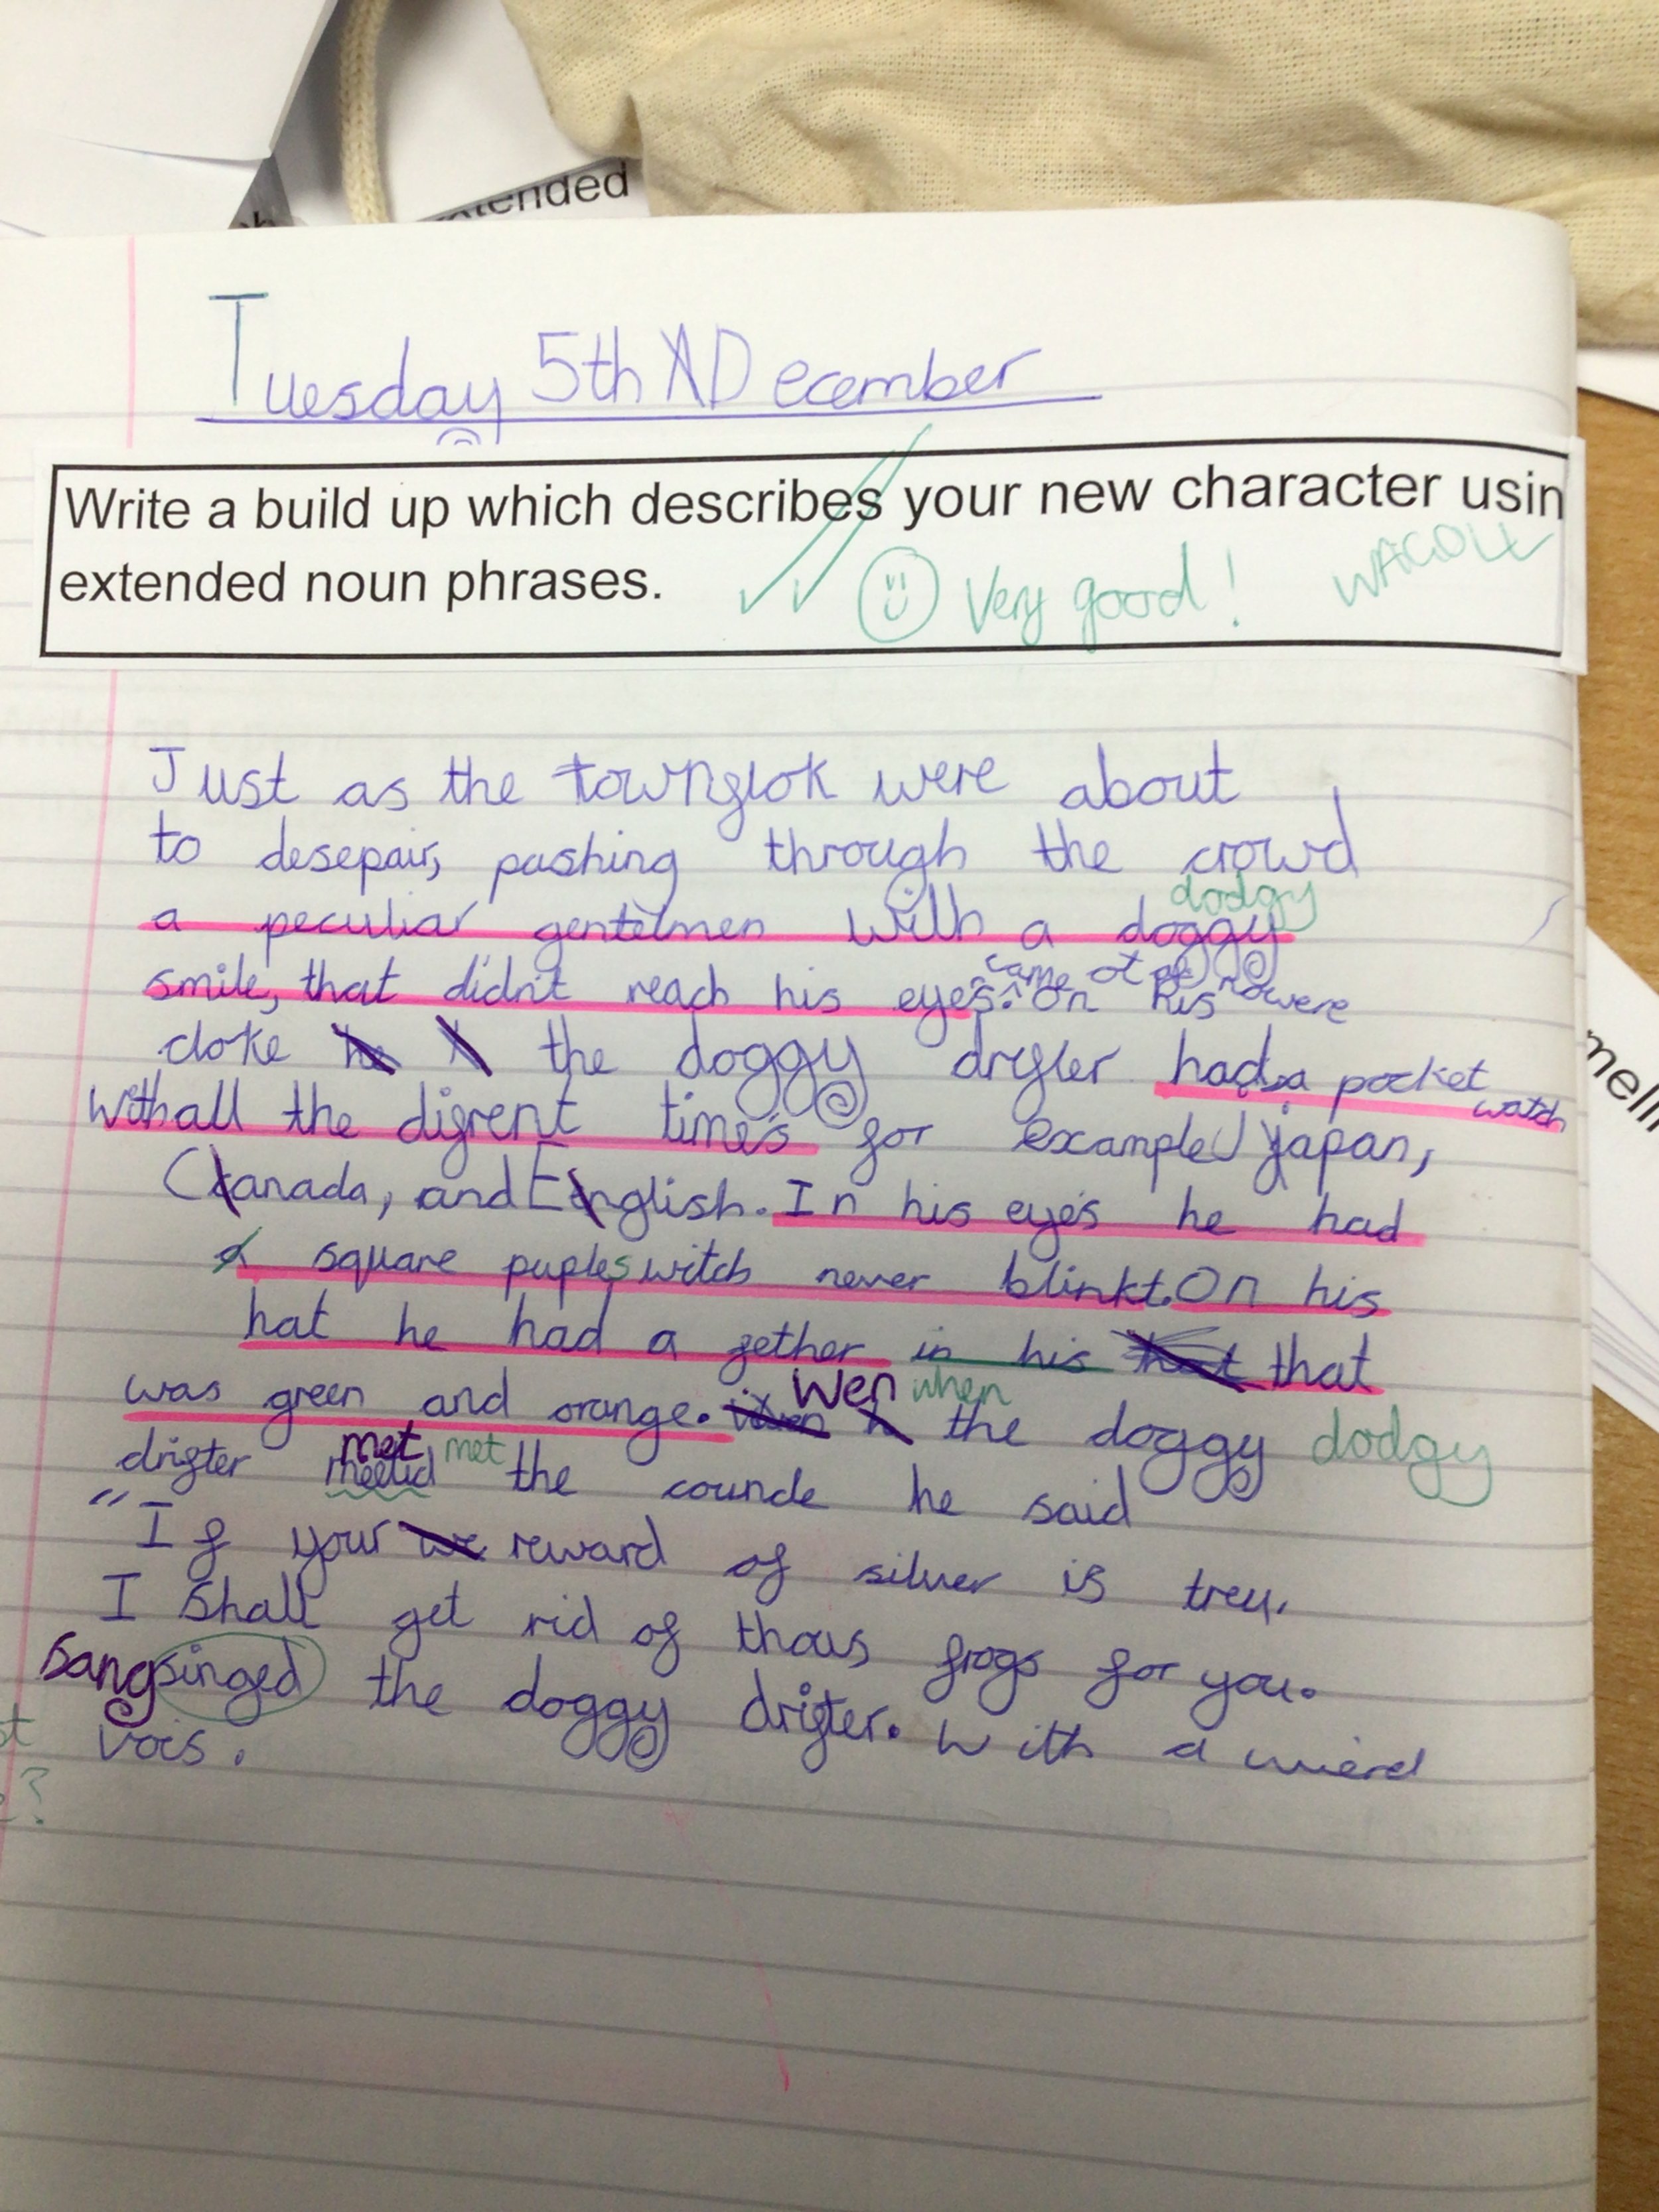 tended
Tuesday 5th December
Write a build up which describes your new character usin
extended noun phrases.
Very good!
WAGOLL
Just as the townfolk were about
to desepair, pushing through the crowd
dodgy
a peculiar gentelmen with a doggy
came ot of nowere
smile, that didn't reach his eyes. On his
cloke the doggy drifter had a pocket watch
with all the difrent times for example Japan,
Canada, and English. In his eyes he had
a square puples witch never blinkt. On his
hat he had a fether in his that
was green and orange. Wen when the doggy dodgy
drifter met met the counde he said
"If your reward of silver is treu.
I shall get rid of thous frogs for you.
sang singed the doggy drifter. With a wierd
vois.
?
mell